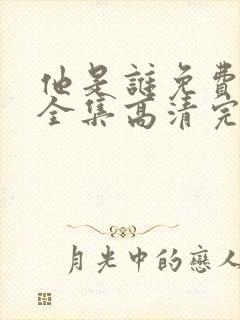 他是誰免費
全集高清完
月光中的戀人